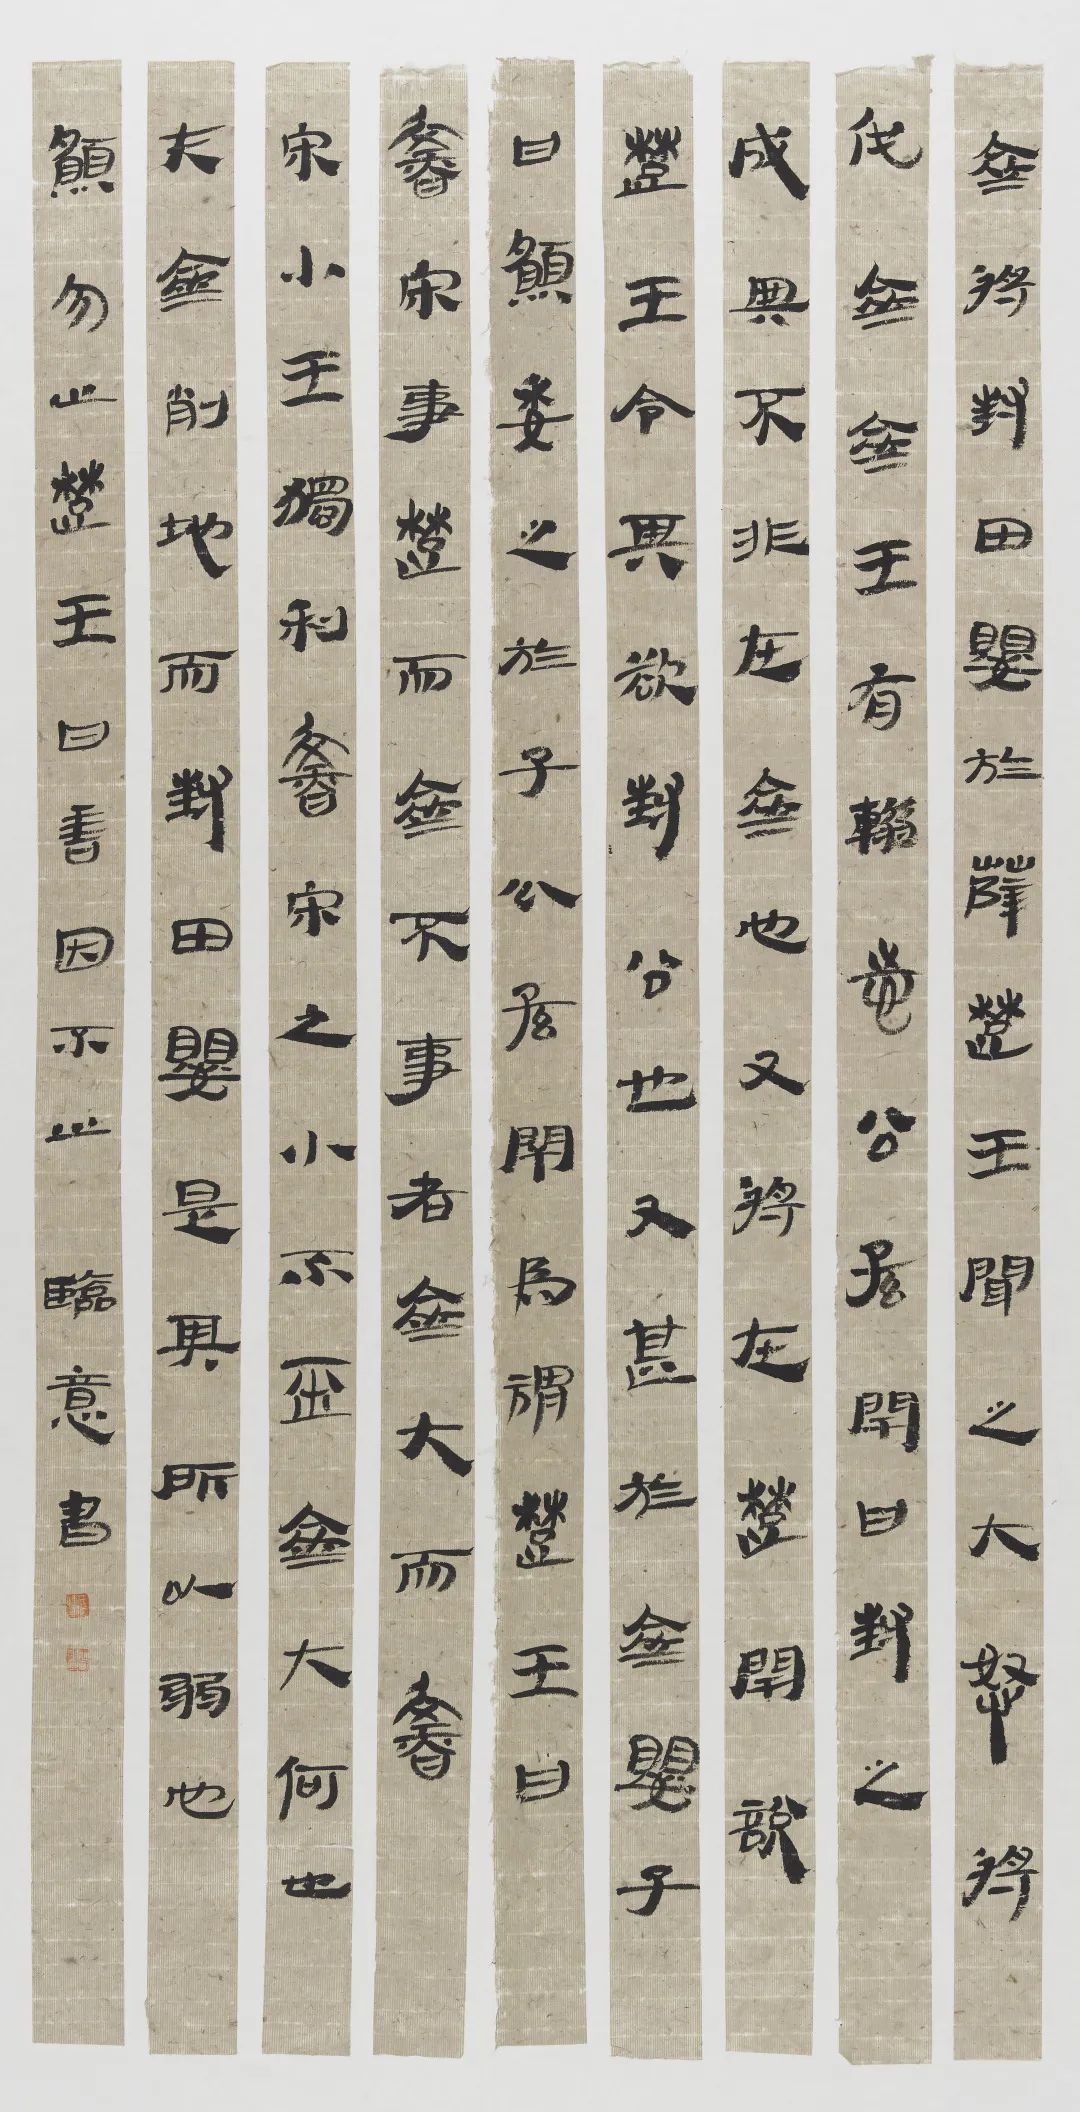 齊將封田嬰於薛楚王聞之大怒將
伐齊齊王有輟志公孫閈曰封之
成與不非在齊也又將在楚閈說
楚王令其欲封公也又甚於齊嬰子
曰願委之於子公孫閈為謂楚王曰
魯宋事楚而齊不事者齊大而魯
宋小王獨利魯宋之小不惡齊大何也
夫齊削地而封田嬰是其所以弱也
願勿止楚王曰善因不止 臨意書